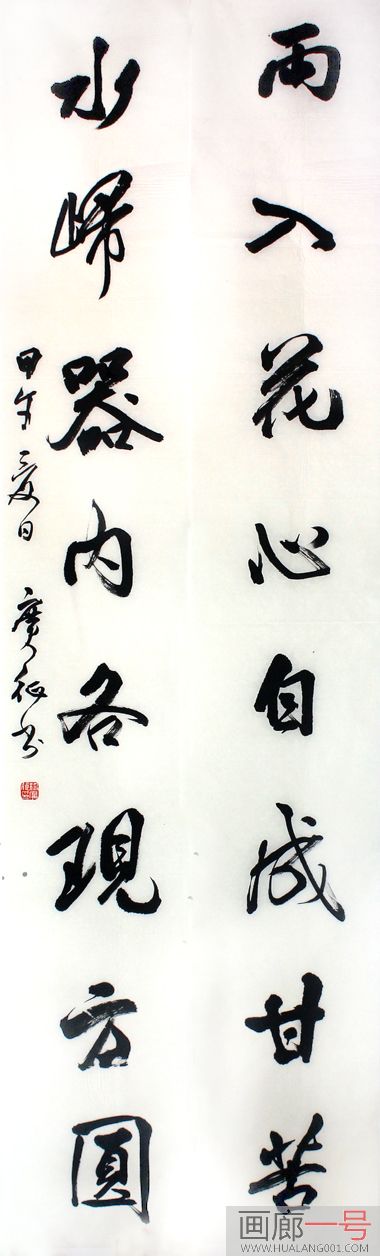 雨入花心自成甘苦
水歸器内各現方圓
甲午夏日 广征书
画廊一号
WWW.HUALANG001.COM